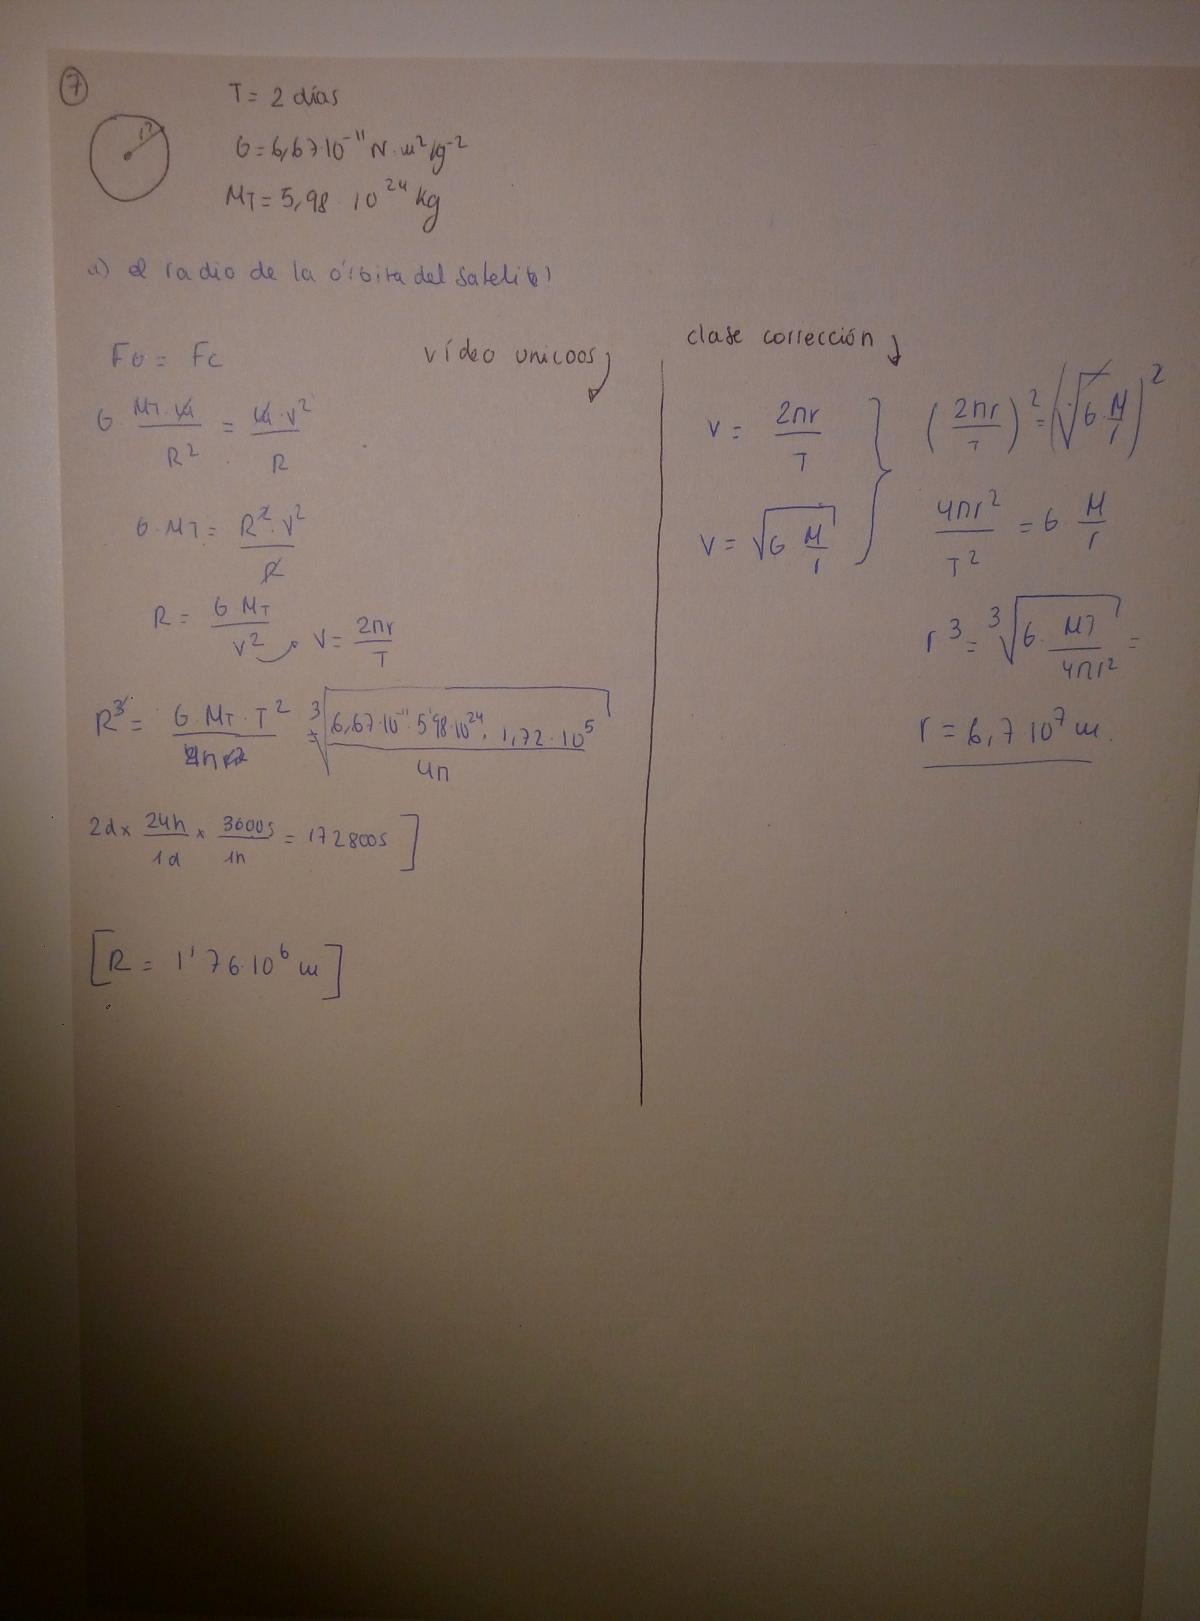 7
r?
T = 2 días
G = 6,67·10⁻¹¹ N·m²/kg⁻²
MT = 5,98 · 10²⁴ kg
a) el radio de la órbita del satelite)
FG = FC
G · MT·m/R² = m·v²/R
G·MT = R²·v²/R
R = G MT/v²
v = 2πr/T
R³ = G·MT·T²/4π = ³√(6,67·10⁻¹¹·5'98·10²⁴·1,72·10⁵/4π)
2d x 24h/1d x 3600s/1h = 172800s ]
[R = 1'76·10⁶ m]
vídeo unicoos
clase corrección
v = 2πr/T
v = √(G M/r)
(2πr/T)² = (√(G·M/r))²
4πr²/T² = G · M/r
r³ = ³√(G · MT/4πr²) =
r = 6,7 10⁷ m.